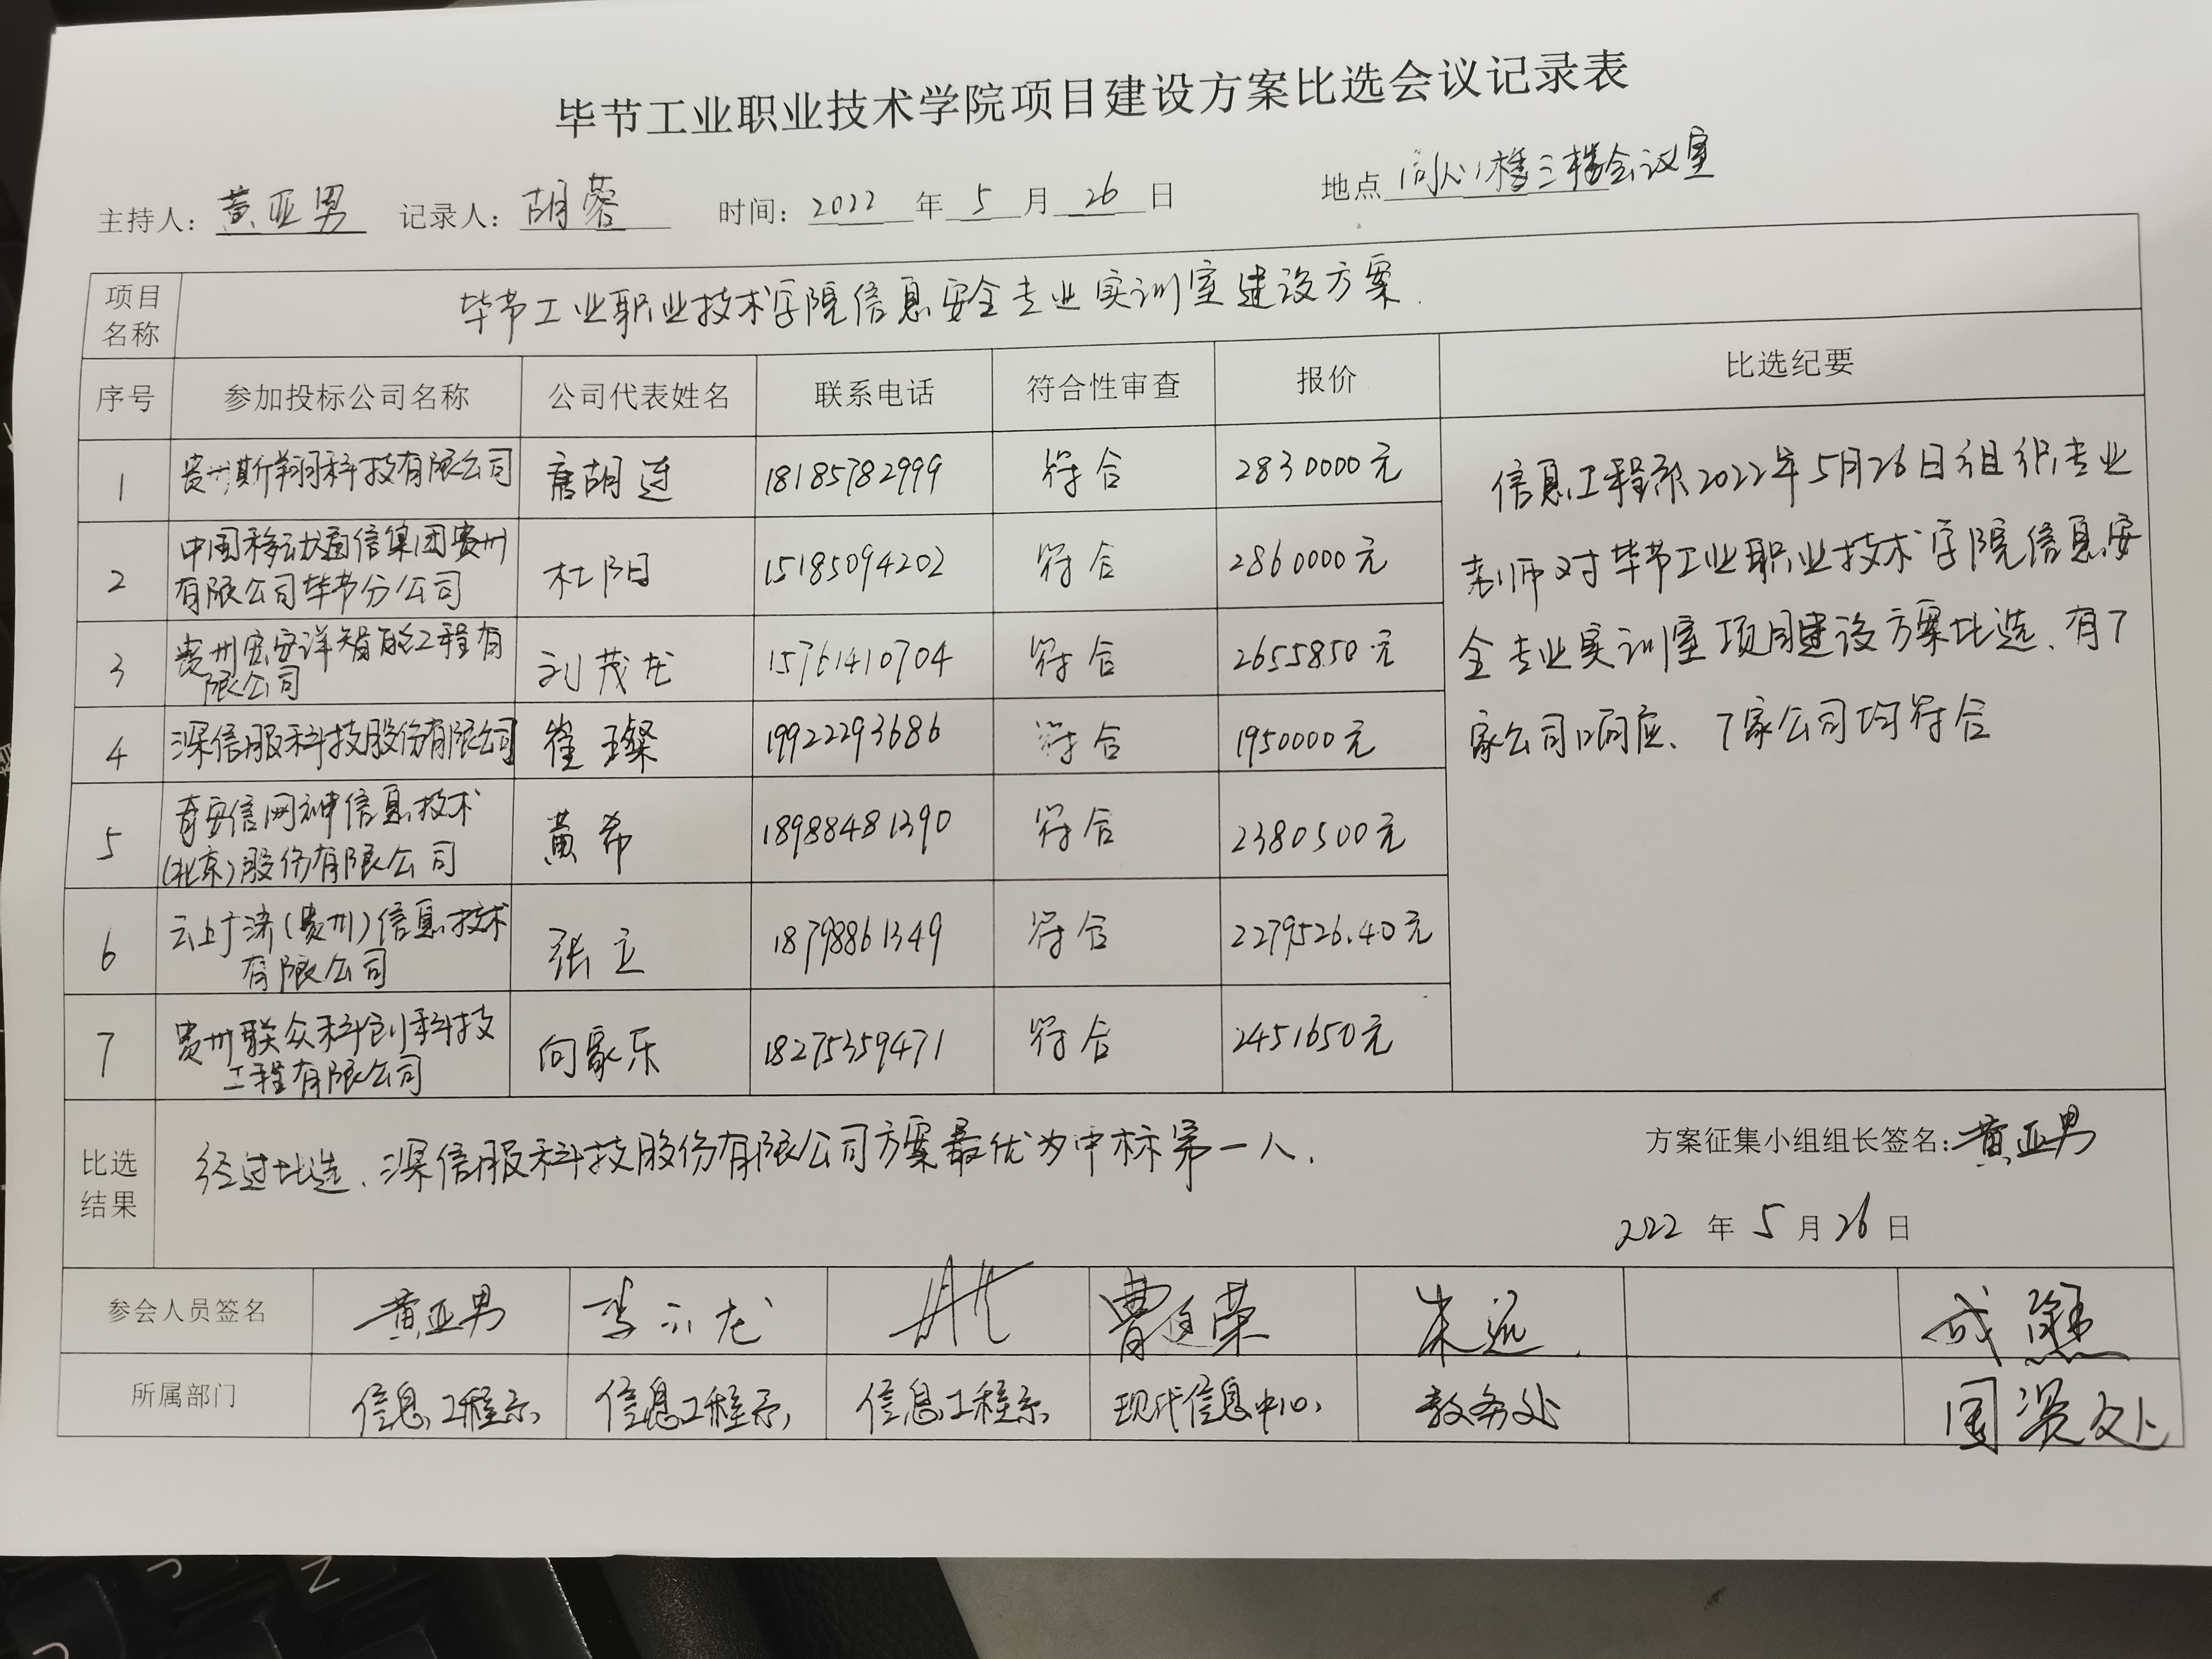 毕节工业职业技术学院项目建设方案比选会议记录表
主持人：黄亚男 记录人：胡蓉 时间：2022 年 5 月 26 日 地点 同心楼三楼会议室
项目名称 毕节工业职业技术学院信息安全专业实训室建设方案.
序号 参加投标公司名称 公司代表姓名 联系电话 符合性审查 报价 比选纪要
1 贵州斯翔科技有限公司 唐胡连 18185782999 符合 2830000元
2 中国移动通信集团贵州有限公司毕节分公司 杜阳 15185094202 符合 2860000元
3 贵州宏安洋智能工程有限公司 刘茂龙 15761410704 符合 2655850元
4 深信服科技股份有限公司 崔璨 19922293686 符合 1950000元
5 奇安信网神信息技术(北京)股份有限公司 黄希 18988481390 符合 2380500元
6 云上广济(贵州)信息技术有限公司 张立 18798861349 符合 2279526.40元
7 贵州联众科创科技工程有限公司 向家乐 18275359471 符合 2451650元
信息工程系2022年5月26日组织专业
老师对毕节工业职业技术学院信息安
全专业实训室项目建设方案比选、有7
家公司响应、7家公司均符合
比选结果 经过比选、深信服科技股份有限公司方案最优为中标第一人.
方案征集小组组长签名：黄亚男
2022 年 5 月 26 日
参会人员签名 黄亚男 李小龙 曹廷荣 朱远
所属部门 信息工程系 信息工程系 信息工程系 现代信息中心 教务处 国资处